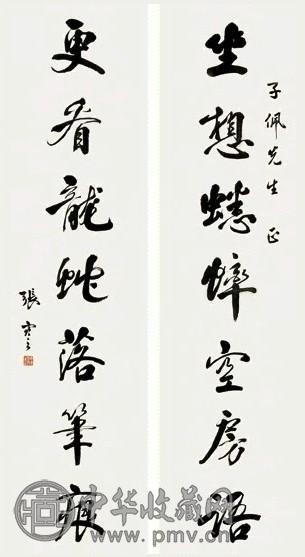 子佩先生正
坐想蟋蟀空房語
更看龍蛇落筆痕
張
中华收藏网
www.pmv.cn